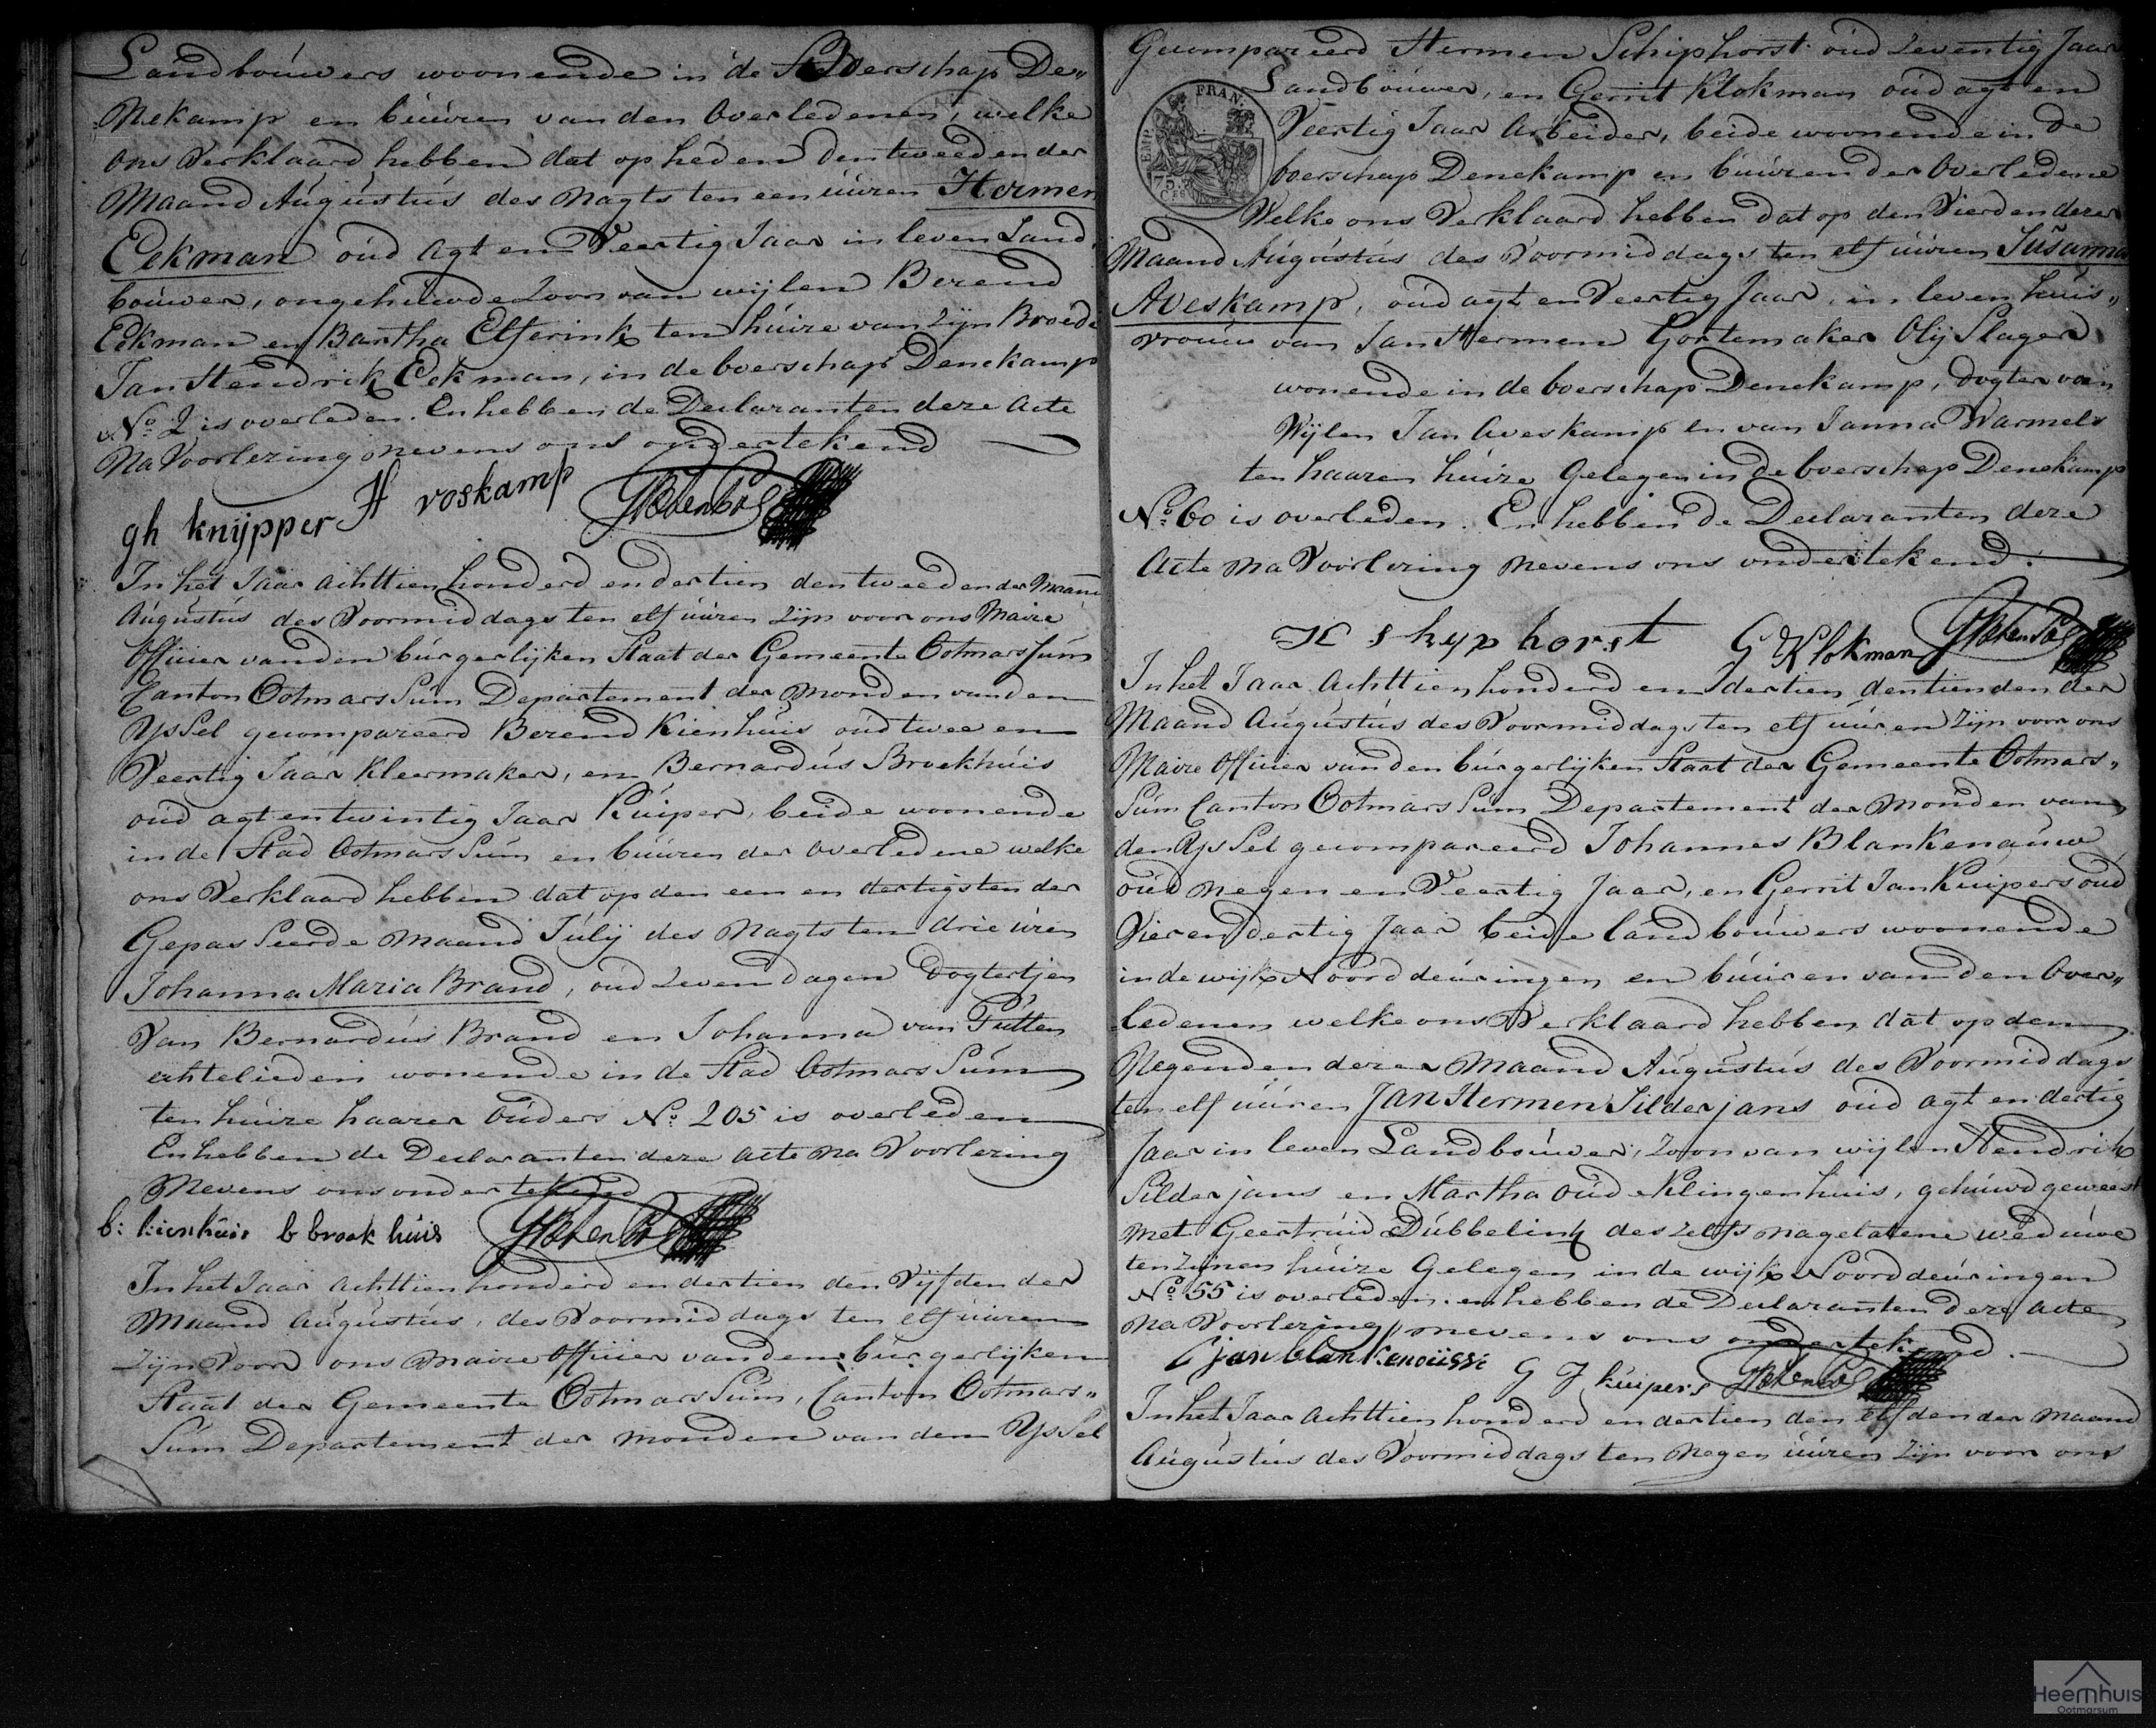 Landbouwers woonende in de Boerschap De„
Nekamp en buuren van den Overledenen, welke
ons Verklaard hebben dat op heden den tweeden der
Maand Augustus des Nagts ten een uuren Hermen
Eekman oud Agt en Veertig Jaar in leven Land
bouwer, ongehuwde Zoon van wijlen Berend
Eekman en Bartha Elferink ten huize van Zijn Broede
Jan Hendrik Eekman, in de boerschap Denekamp
No. 2 is overleden. En hebben de Declaranten deze Acte
Na Voorlezing nevens ons ondertekend
gh knijpper H voskamp
In het Jaar Achttien honderd en dertien den tweeden der Maand
Augustus des Voormiddags ten elf uuren Zijn voor ons Maire
Officier van den burgerlijken Staat der Gemeente Ootmarsum
Canton Ootmarssum Departement der Monden van den
Yssel gecompareerd Berend Kienhuis oud twee en
Veertig Jaar Kleermaker, en Bernardus Broekhuis
oud agt en twintig Jaar Kuiper, beide woonende
in de Stad Ootmarssum en buuren der Overledene welke
ons Verklaard hebben dat op den een en dertigsten der
Gepasseerde Maand Julij des Nagts ten drie uren
Johanna Maria Brand, oud Zeven dagen Dogtertjen
Van Bernardus Brand en Johanna van Putten
echtelieden wonende in de Stad Ootmarssum
ten huize haarer Ouders No. 205 is overleden
En hebben de Declaranten deze Acte na Voorlezing
Nevens ons ondertekend
b: kienhuis b broekhuis
In het Jaar Achttien honderd en dertien den Vijfden der
Maand Augustus, des Voormiddags ten elf uuren
Zijn Voor ons Maire Officier van den burgerlijken
Staat der Gemeente Ootmarssum, Canton Ootmars„
Sum Departement der Monden van den Yssel
Gecompareerd Hermen Schiphorst oud Zeventig Jaar
Landbouwer, en Gerrit Klokman oud agt en
Veertig Jaar Arbeider, beide woonende in de
boerschap Denekamp en buuren der Overledene
Welke ons Verklaard hebben dat op den Vierden dezer
Maand Augustus des Voormiddags ten elf uuren Susanna
Aveskamp, oud agt en Veertig Jaar, in leven huis„
vrouw van Jan Hermen Gortemaker Olij Slager
wonende in de boerschap Denekamp, Dogter van
Wijlen Jan Aveskamp en van Janna Warmels
ten haaren huize Gelegen in de boerschap Denekamp
No. 60 is overleden. En hebben de Declaranten deze
Acte Na Voorlezing Nevens ons ondertekend.
H shyphorst G Klokman
In het Jaar Achttien honderd en dertien den tienden der
Maand Augustus des Voormiddags ten elf uuren Zijn voor ons
Maire Officier van den burgerlijken Staat der Gemeente Ootmars„
Sum Canton Ootmarssum Departement der Monden van
den Yssel gecompareerd Johannes Blankenauw
oud Negen en Veertig Jaar, en Gerrit Jan Kuipers oud
Vier en dertig Jaar beide landbouwers woonende
in de wijk Noorddeuringen en buuren van den Over„
ledenen welke ons Verklaard hebben dat op den
Negenden dezer Maand Augustus des Voormiddags
ten elf uuren Jan Hermen Silderjans oud agt en dertig
Jaar in leven Landbouwer, Zoon van wijlen Hendrik
Silderjans en Martha Oude Klingenhuis, gehuwd geweest
Met Geertruid Dubbelink deszelfs nagelatene weduwe
ten Zijnen huize Gelegen in de wijk Noorddeuringen
No. 55 is overleden. en hebben de Declaranten deze acte
na Voorlezing nevens ons ondertekend.
G J kuipers
In het Jaar Achttien honderd en dertien den elfden der Maand
Augustus des Voormiddags ten Negen uuren Zijn voor ons
EMP. FRAN.
75.
Heemhuis
Ootmarsum